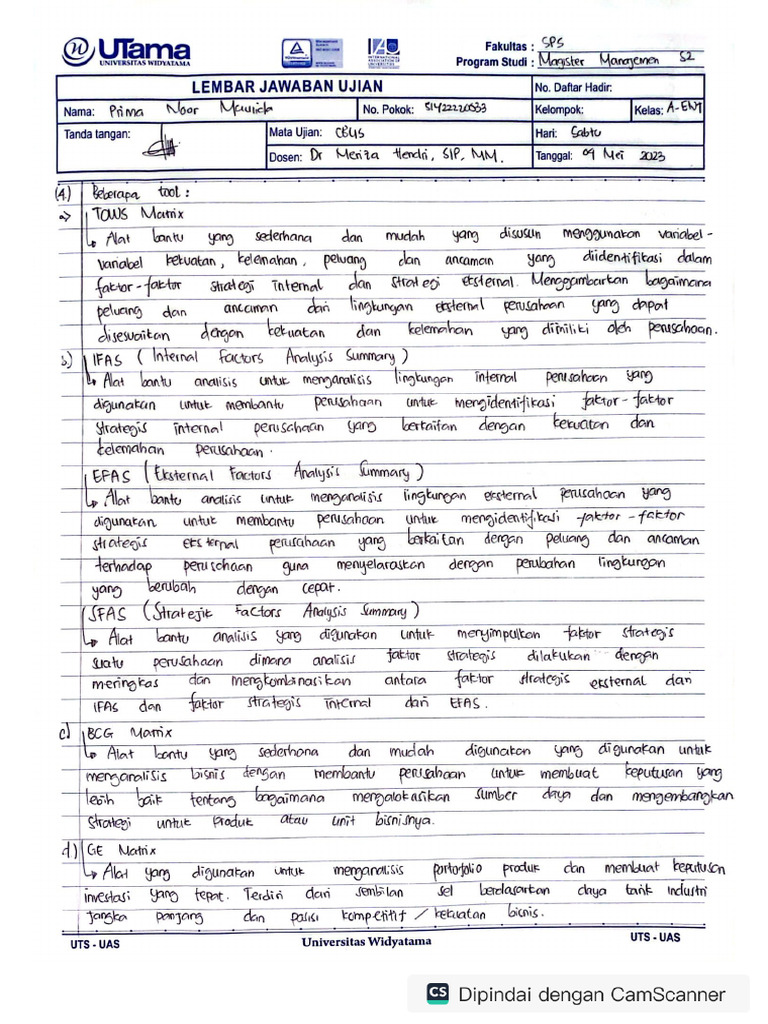 UTama
UNIVERSITAS WIDYATAMA
Fakultas : SPS
Program Studi : Magister Manajemen S2
LEMBAR JAWABAN UJIAN
No. Daftar Hadir:
Nama: Prima Noor Maurida
No. Pokok: 51422220533
Kelompok:
Kelas: A-ENJ
Tanda tangan:
Mata Ujian: CBUS
Hari: Sabtu
Dosen: Dr Meriza Hendri, SIP, MM.
Tanggal: 09 Mei 2023
(4.) Beberapa tool :
a) TOWS Matrix
↳ Alat bantu yang sederhana dan mudah yang disusun menggunakan variabel-
variabel kekuatan, kelemahan, peluang dan ancaman yang diidentifikasi dalam
faktor-faktor strategi internal dan strategi eksternal. Menggambarkan bagaimana
peluang dan ancaman dari lingkungan eksternal perusahaan yang dapat
disesuaikan dengan kekuatan dan kelemahan yang dimiliki oleh perusahaan.
b) IFAS (Internal Factors Analysis Summary)
↳ Alat bantu analisis untuk menganalisis lingkungan internal perusahaan yang
digunakan untuk membantu perusahaan untuk mengidentifikasi faktor-faktor
strategis internal perusahaan yang berkaitan dengan kekuatan dan
kelemahan perusahaan.
EFAS (Eksternal Factors Analysis Summary)
↳ Alat bantu analisis untuk menganalisis lingkungan eksternal perusahaan yang
digunakan untuk membantu perusahaan untuk mengidentifikasi faktor-faktor
strategis eksternal perusahaan yang berkaitan dengan peluang dan ancaman
terhadap perusahaan guna menyelaraskan dengan perubahan lingkungan
yang berubah dengan cepat.
SFAS (Strategik Factors Analysis Summary)
↳ Alat bantu analisis yang digunakan untuk menyimpulkan faktor strategis
suatu perusahaan dimana analisis faktor strategis dilakukan dengan
meringkas dan mengkombinasikan antara faktor strategis eksternal dari
IFAS dan faktor strategis internal dari EFAS.
c) BCG Matrix
↳ Alat bantu yang sederhana dan mudah digunakan yang digunakan untuk
menganalisis bisnis dengan membantu perusahaan untuk membuat keputusan yang
lebih baik tentang bagaimana mengalokasikan sumber daya dan mengembangkan
strategi untuk produk atau unit bisnisnya.
d) GE Matrix
↳ Alat yang digunakan untuk menganalisis portofolio produk dan membuat keputusan
investasi yang tepat. Terdiri dari sembilan sel berdasarkan daya tarik industri
jangka panjang dan posisi kompetitif / kekuatan bisnis.
UTS - UAS
Universitas Widyatama
UTS - UAS
CS Dipindai dengan CamScanner